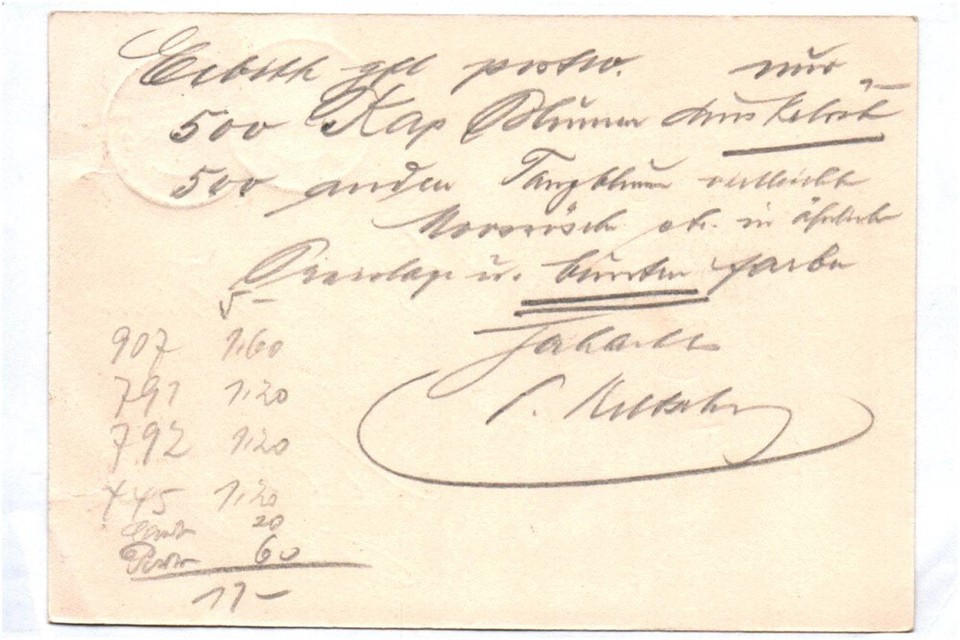 Erbitte gfl postw. nur
500 Kap Blumen dunkelrot
500 andere Tanzblumen vielleicht
Moosrösch od. in ähnlicher
Preislage u. bunten Farbe
5-
907 1,60
791 1,20
792 1,20
445 1,20
20
Porto 60
11-